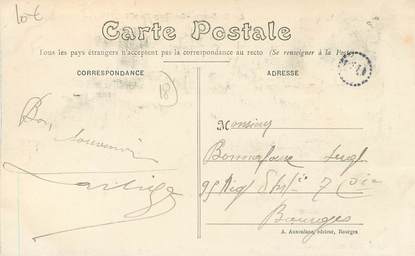 10€
Carte Postale
Tous les pays étrangers n'acceptent pas la correspondance au recto (Se renseigner à la Poste)
CORRESPONDANCE
ADRESSE
18
Bon
souvenir
Monsieur
Bonnafoux
95
7 Cie
Bourges
A. Auxenfans, éditeur, Bourges